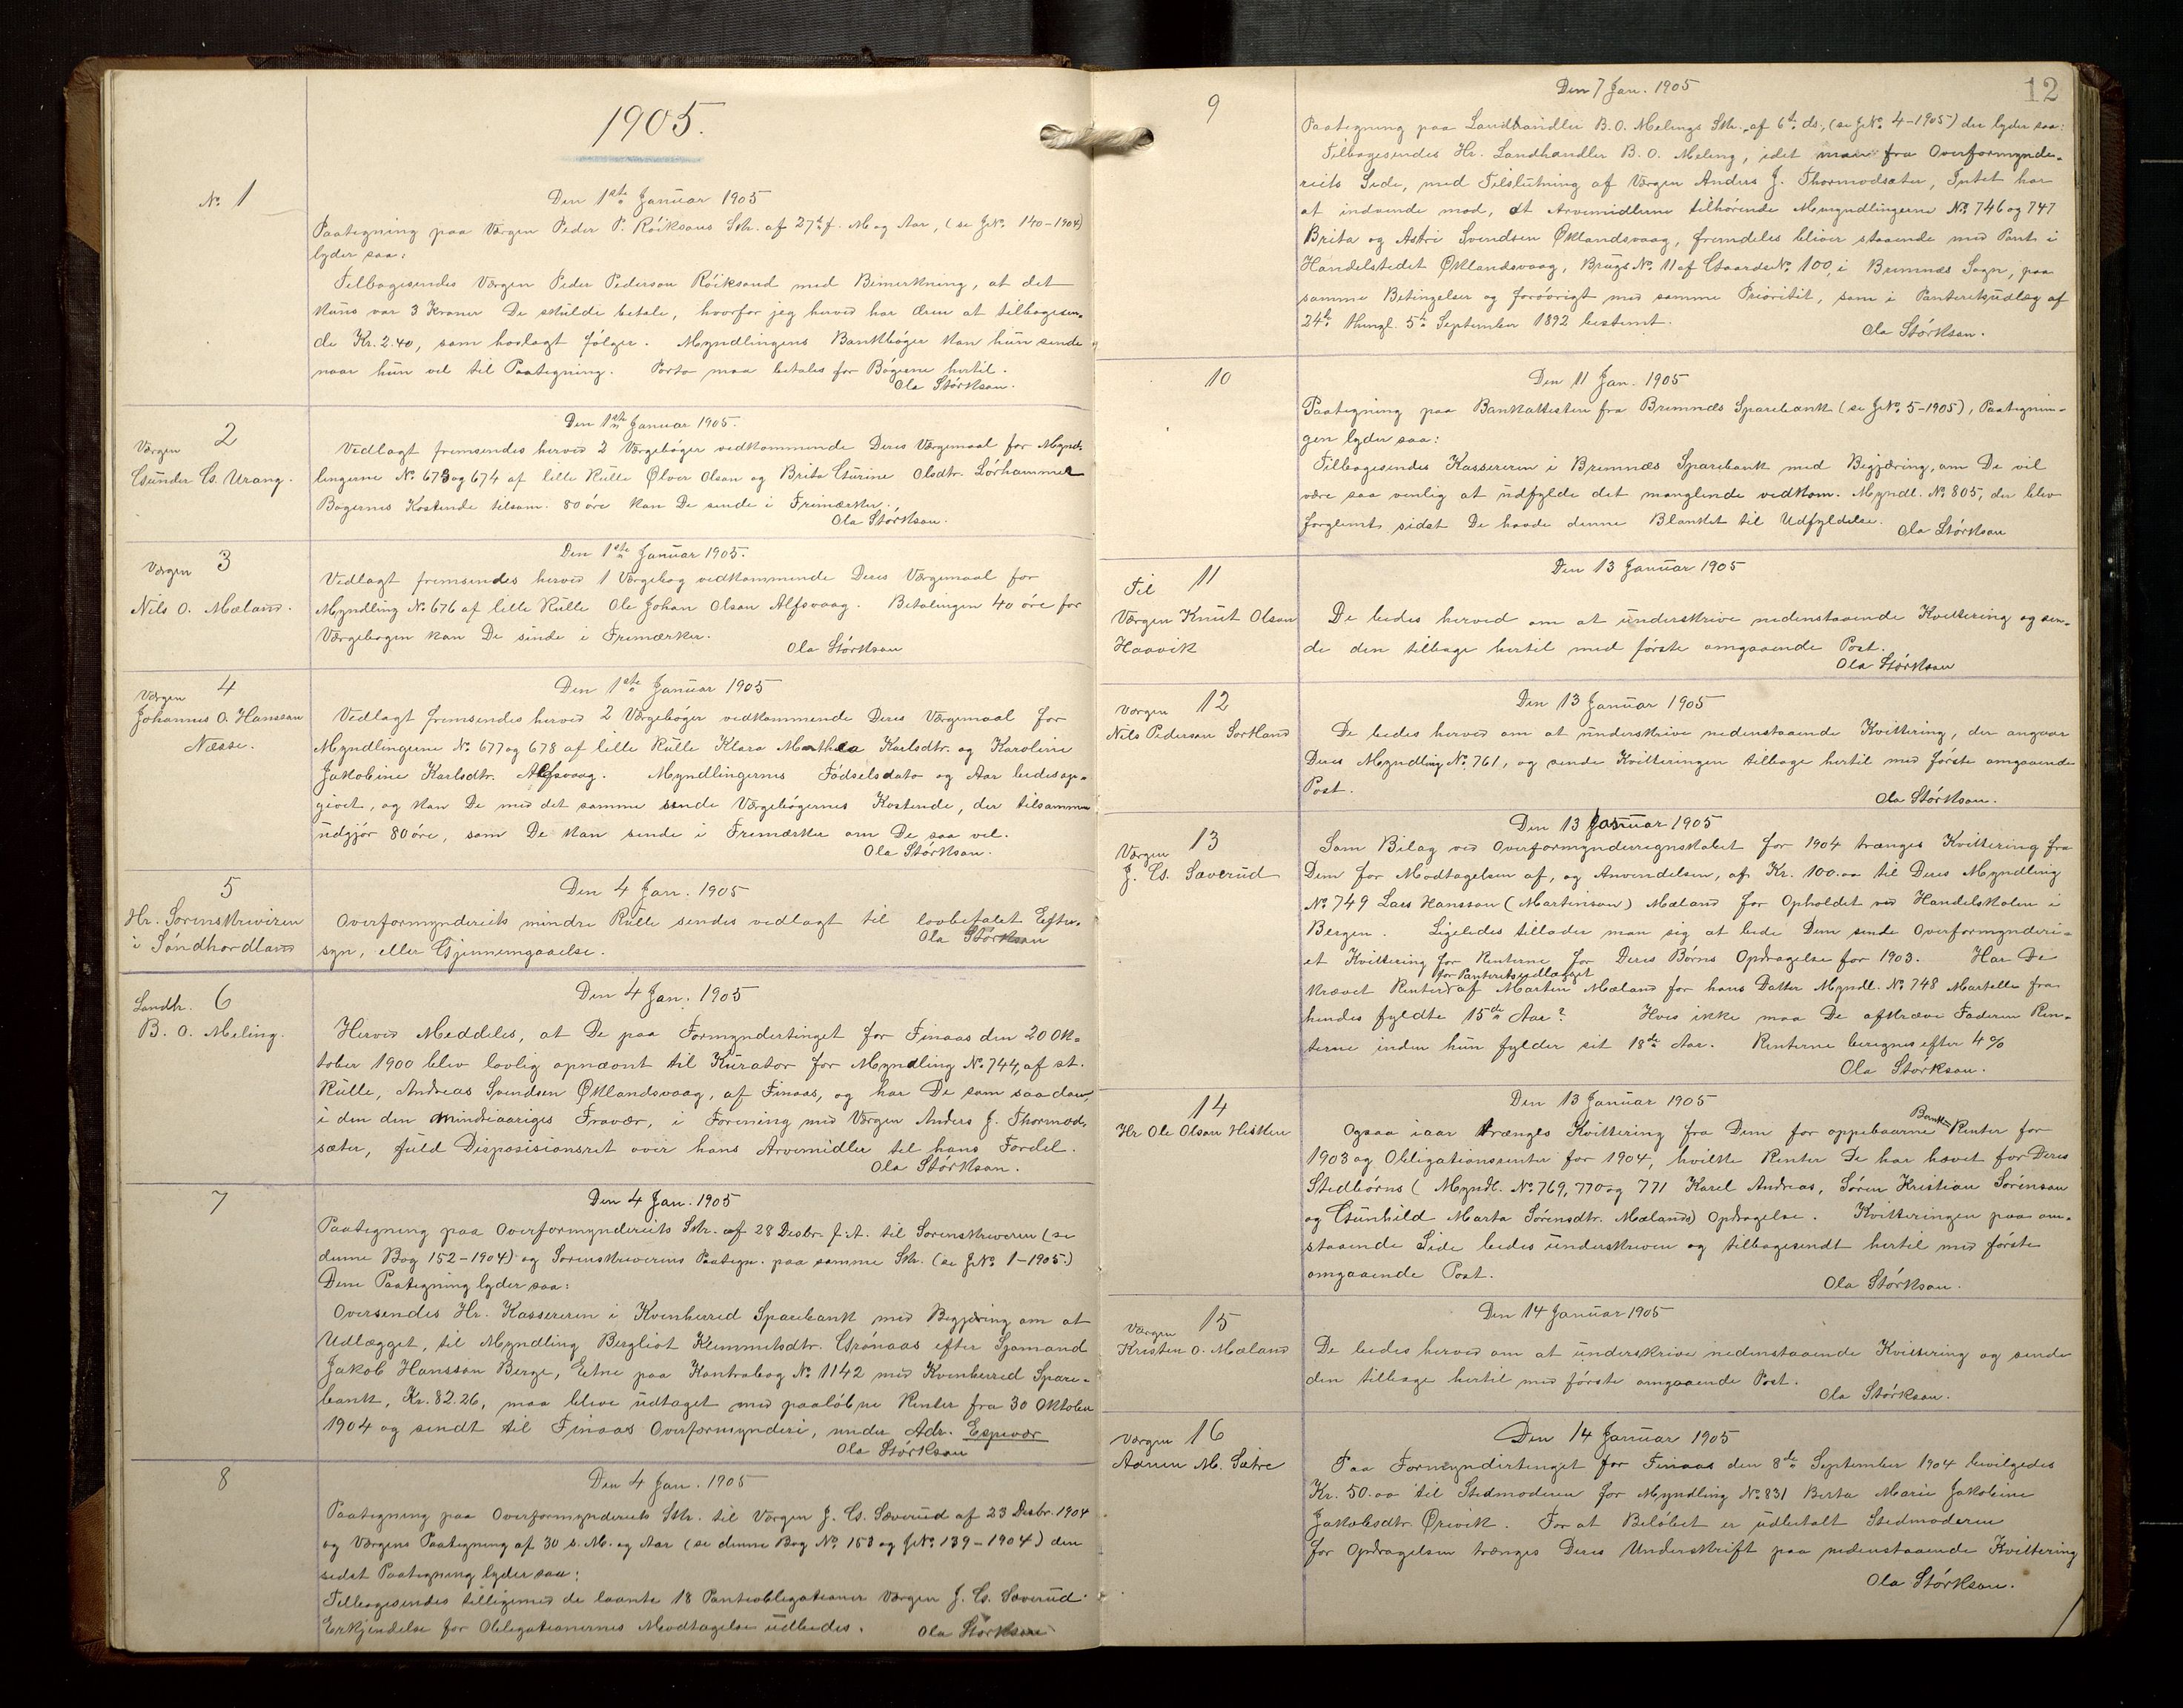 1905.
No. 1
Den 1ste Januar 1905
Paategning paa Værgen Peder P. Röiksons Skr. af 27de f. M og Aar, (se J.No. 140-1904)
lyder saa:
Tilbagesendes Værgen Peder Pederson Röiksund med Bemerkning, at det
kuns var 3 Kroner De skulde betale, hvorfor jeg herved har æren at tilbagesen-
de Kr. 2.40, som hoslagt følger. Myndlingens Bankbøger kan hun sende
naar hun vil til Paategning. Porto maa betales for Bøgerne hertil.
Ola Störkson.
2
Værgen
Gunder G. Urang.
Den 1ste Januar 1905.
Vedlagt fremsendes herved 2 Værgebøger vedkommende Deres Værgemaal for Mynd-
lingerne No. 673 og 674 af lille Rulle Ölver Olson og Brita Gurine Olsdtr. Lörhammer
Bøgernes Kostende tilsam. 80 øre kan De sende i Frimærker.
Ola Störkson.
3
Værgen
Nils O. Mæland.
Den 1ste Januar 1905.
Vedlagt fremsendes herved 1 Værgebog vedkommende Deres Værgemaal for
Myndling No. 676 af lille Rulle Ole Johan Olson Alfsvaag. Betalingen 40 öre for
Værgebogen kan De sende i Frimærker.
Ola Störkson
4
Værgen
Johannes O. Hansson
Næsse.
Den 1ste Januar 1905
Vedlagt fremsendes herved 2 Værgebøger vedkommende Deres Værgemaal for
Myndlingerne No. 677 og 678 af lille Rulle Klara Mathea Karlsdtr. og Karoline
Jakobine Karlsdtr. Alfsvaag. Myndlingernes Fødselsdato og Aar bedes op-
givet, og kan De med det samme sende Værgebøgernes Kostende, der tilsammen
udgjør 80 öre, som De kan sende i Frimærker om De saa vil.
Ola Störkson.
5
Hr. Sorenskriveren
i Söndhordland
Den 4 Jan. 1905
Overformynderiets mindre Rulle sendes vedlagt til lovbefalet Efter-
syn, eller Gjennemgaaelse.
Ola Störkson
6
Landh.
B. O. Meling.
Den 4 Jan. 1905
Herved Meddeles, at De paa Formyndertinget for Finaas den 20 Ok-
tober 1900 blev lovlig opnævnt til Kurator for Myndling No. 744, af st.
Rulle, Andreas Svendsen Øklandsvaag, af Finaas, og har De som saadan,
i den den mindreaariges Fravær, i Forening med Værgen Anders J. Thormod-
sæter, fuld Disposisionsret over hans Arvemidler til hans Fordel.
Ola Störkson.
7
Den 4 Jan. 1905
Paategning paa Overformynderiets Skr. af 28 Desbr. f.A. til Sorenskriveren (se
denne Bog 152-1904) og Sorenskriverens Paategn. paa samme Skr. (se J.No. 1-1905.)
Denne Paategning lyder saa:
Oversendes Hr. Kassereren i Kvinherred Sparebank med Begjæring om at
Udlægget, til Myndling Bergliot Klemmetsdtr. Grönaas efter Sjømand
Jakob Hansson Berge, Etne paa Kontrabog No. 1142 med Kvinherred Spare-
bank, Kr. 82.26, maa blive udtaget med paalöbne Renter fra 30 Oktober
1904 og sendt til Finaas Overformynderi, under Adr. Espevær
Ola Störkson
8
Den 4 Jan. 1905
Paategning paa Overformynderiets Skr. til Værgen J. G. Sæverud af 23 Desbr. 1904
og Værgens Paategning af 30 s. M. og Aar (se denne Bog No. 153 og J.No. 139-1904) den
sidst Paategning lyder saa:
Tilbagesendes tilligemed de laante 18 Panteobligationer Værgen J. G. Sæverud
Erkjendelse for Obligationernes Modtagelse udbedes.
Ola Störkson
12
9
Den 7 Jan. 1905
Paategning paa Landhandler B. O. Melings Skr. af 6te ds., (se J.No. 4-1905) der lyder saa:
Tilbagesendes Hr. Landhandler B. O. Meling, idet man fra Overformynde-
riets Side, med Tilslutning af Værgen Anders J. Thormodsæter, Intet har
at indvende mod, at Arvemidlerne tilhörende Myndlingerne No. 746 og 747
Brita og Astri Svendsen Øklandsvaag, fremdeles bliver staaende mod Pant i
Handelstedet Øklandsvaag, Brugs No. 11 af Gaards No. 100, i Bremnæs Sogn, paa
samme Betingelser og forövrigt med samme Prioritet, som i Panteretsudlæg af
24de thingl. 5te September 1892 bestemt.
Ola Störkson.
10
Den 11 Jan. 1905
Paategning paa Bankattesten fra Bremnæs Sparebank (se J.No. 5-1905), Paategnin-
gen lyder saa:
Tilbagesendes Kassereren i Bremnæs Sparebank med Begjæring, om De vil
være saa venlig at udfylde det manglende vedkom. Myndl. No. 805, der blev
forglemt sidst De havde denne Blanket til Udfyldelse.
Ola Störkson
11
Til
Værgen Knut Olson
Haavik
Den 13 Januar 1905
De bedes herved om at underskrive nedenstaaende Kvittering og sen-
de den tilbage hertil med første omgaaende Post.
Ola Störkson
12
Værgen
Nils Pederson Sortland
Den 13 Januar 1905
De bedes herved om at underskrive nedenstaaende Kvittering, der angaar
Deres Myndling No. 761, og sende Kvitteringen tilbage hertil med förste omgaaende
Post.
Ola Störkson.
13
Værgen
J. G. Sæverud
Den 13 Januar 1905
Som Bilag ved Overformynderregnskabet for 1904 trænges Kvittering fra
Dem for Modtagelsen af, og Anvendelsen, af Kr. 100.00 til Deres Myndling
No. 749 Lars Hansson (Martinson) Mæland for Opholdet ved Handelskolen i
Bergen. Ligeledes tillader man sig at bede Dem sende Overformynderi-
et Kvittering for Renterne for Deres Börns Opdragelse for 1903. Har De
for Panteretsudlægget
krævet Renter af Martin Mæland for hans Datter Myndl. No. 748 Martelle fra
hendes fyldte 15de Aar? Hvis ikke maa De afkræve Faderen Ren-
terne inden hun fylder sit 18de Aar. Renterne beregnes efter 4%
Ola Störkson.
14
Hr Ole Olson Hisken
Den 13 Januar 1905
Ogsaa iaar trænges Kvittering fra Dem for oppebaarne Bank Renter for
1903 og Obligationsrenter for 1904, hvilke Renter De har hævet for Deres
Stedbörns (Myndl. No. 769, 770 og 771 Karl Andreas, Sören Kristian Sörenson
og Gunhild Marta Sörensdtr. Mæland) Opdragelse. Kvitteringen paa om-
staaende Side bedes underskreven og tilbagesendt hertil med förste
omgaaende Post.
Ola Störkson.
15
Værgen
Kristen O. Mæland
Den 14 Januar 1905
De bedes herved om at underskrive nedenstaaende Kvittering og sende
den tilbage hertil med förste omgaaende Post.
Ola Störkson.
16
Værgen
Adnen M. Sætre
Den 14 Januar 1905
Paa Formyndertinget for Finaas den 8de September 1904 bevilgedes
Kr. 50.00 til Stedmoderen for Myndling No. 831 Berta Marie Jakobine
Jakobsdtr. Ørevik. For at Belöbet er udbetalt Stedmoderen
for Opdragelsen trænges Deres Underskrift paa nedenstaaende Kvittering
Ola Störkson.